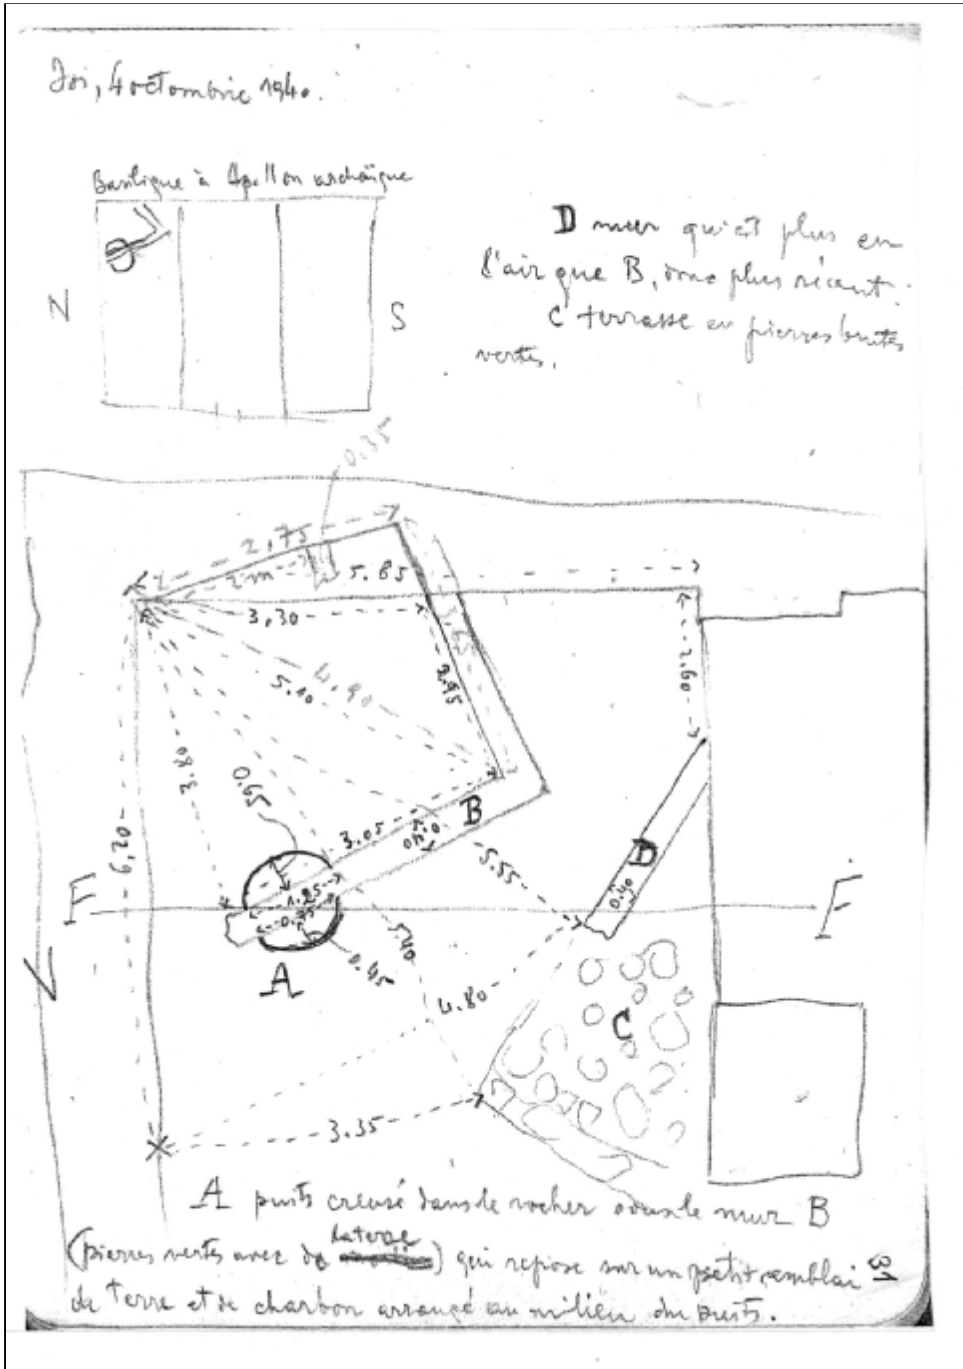 Joi, 4 octombrie 1940.
Basilique à Apollon archaïque
N
S
D mur qui est plus en
l'air que B, donc plus récent.
C terrasse en pierres brutes
vertes.
0.35
2,75
2m
5.85
3,30
3,65
2.95
4.90
5.10
2.60
3.80
0.65
6,20
3.05
0,40
B
5.55
D
0.40
F
F
1.25
0.75
5.40
0.45
A
V
4.80
C
3.35
A puits creusé dans le rocher sous le mur B
laterse
(pierres vertes avec de) qui repose sur un petit remblai
31
de terre et de charbon arrangé au milieu du puits.